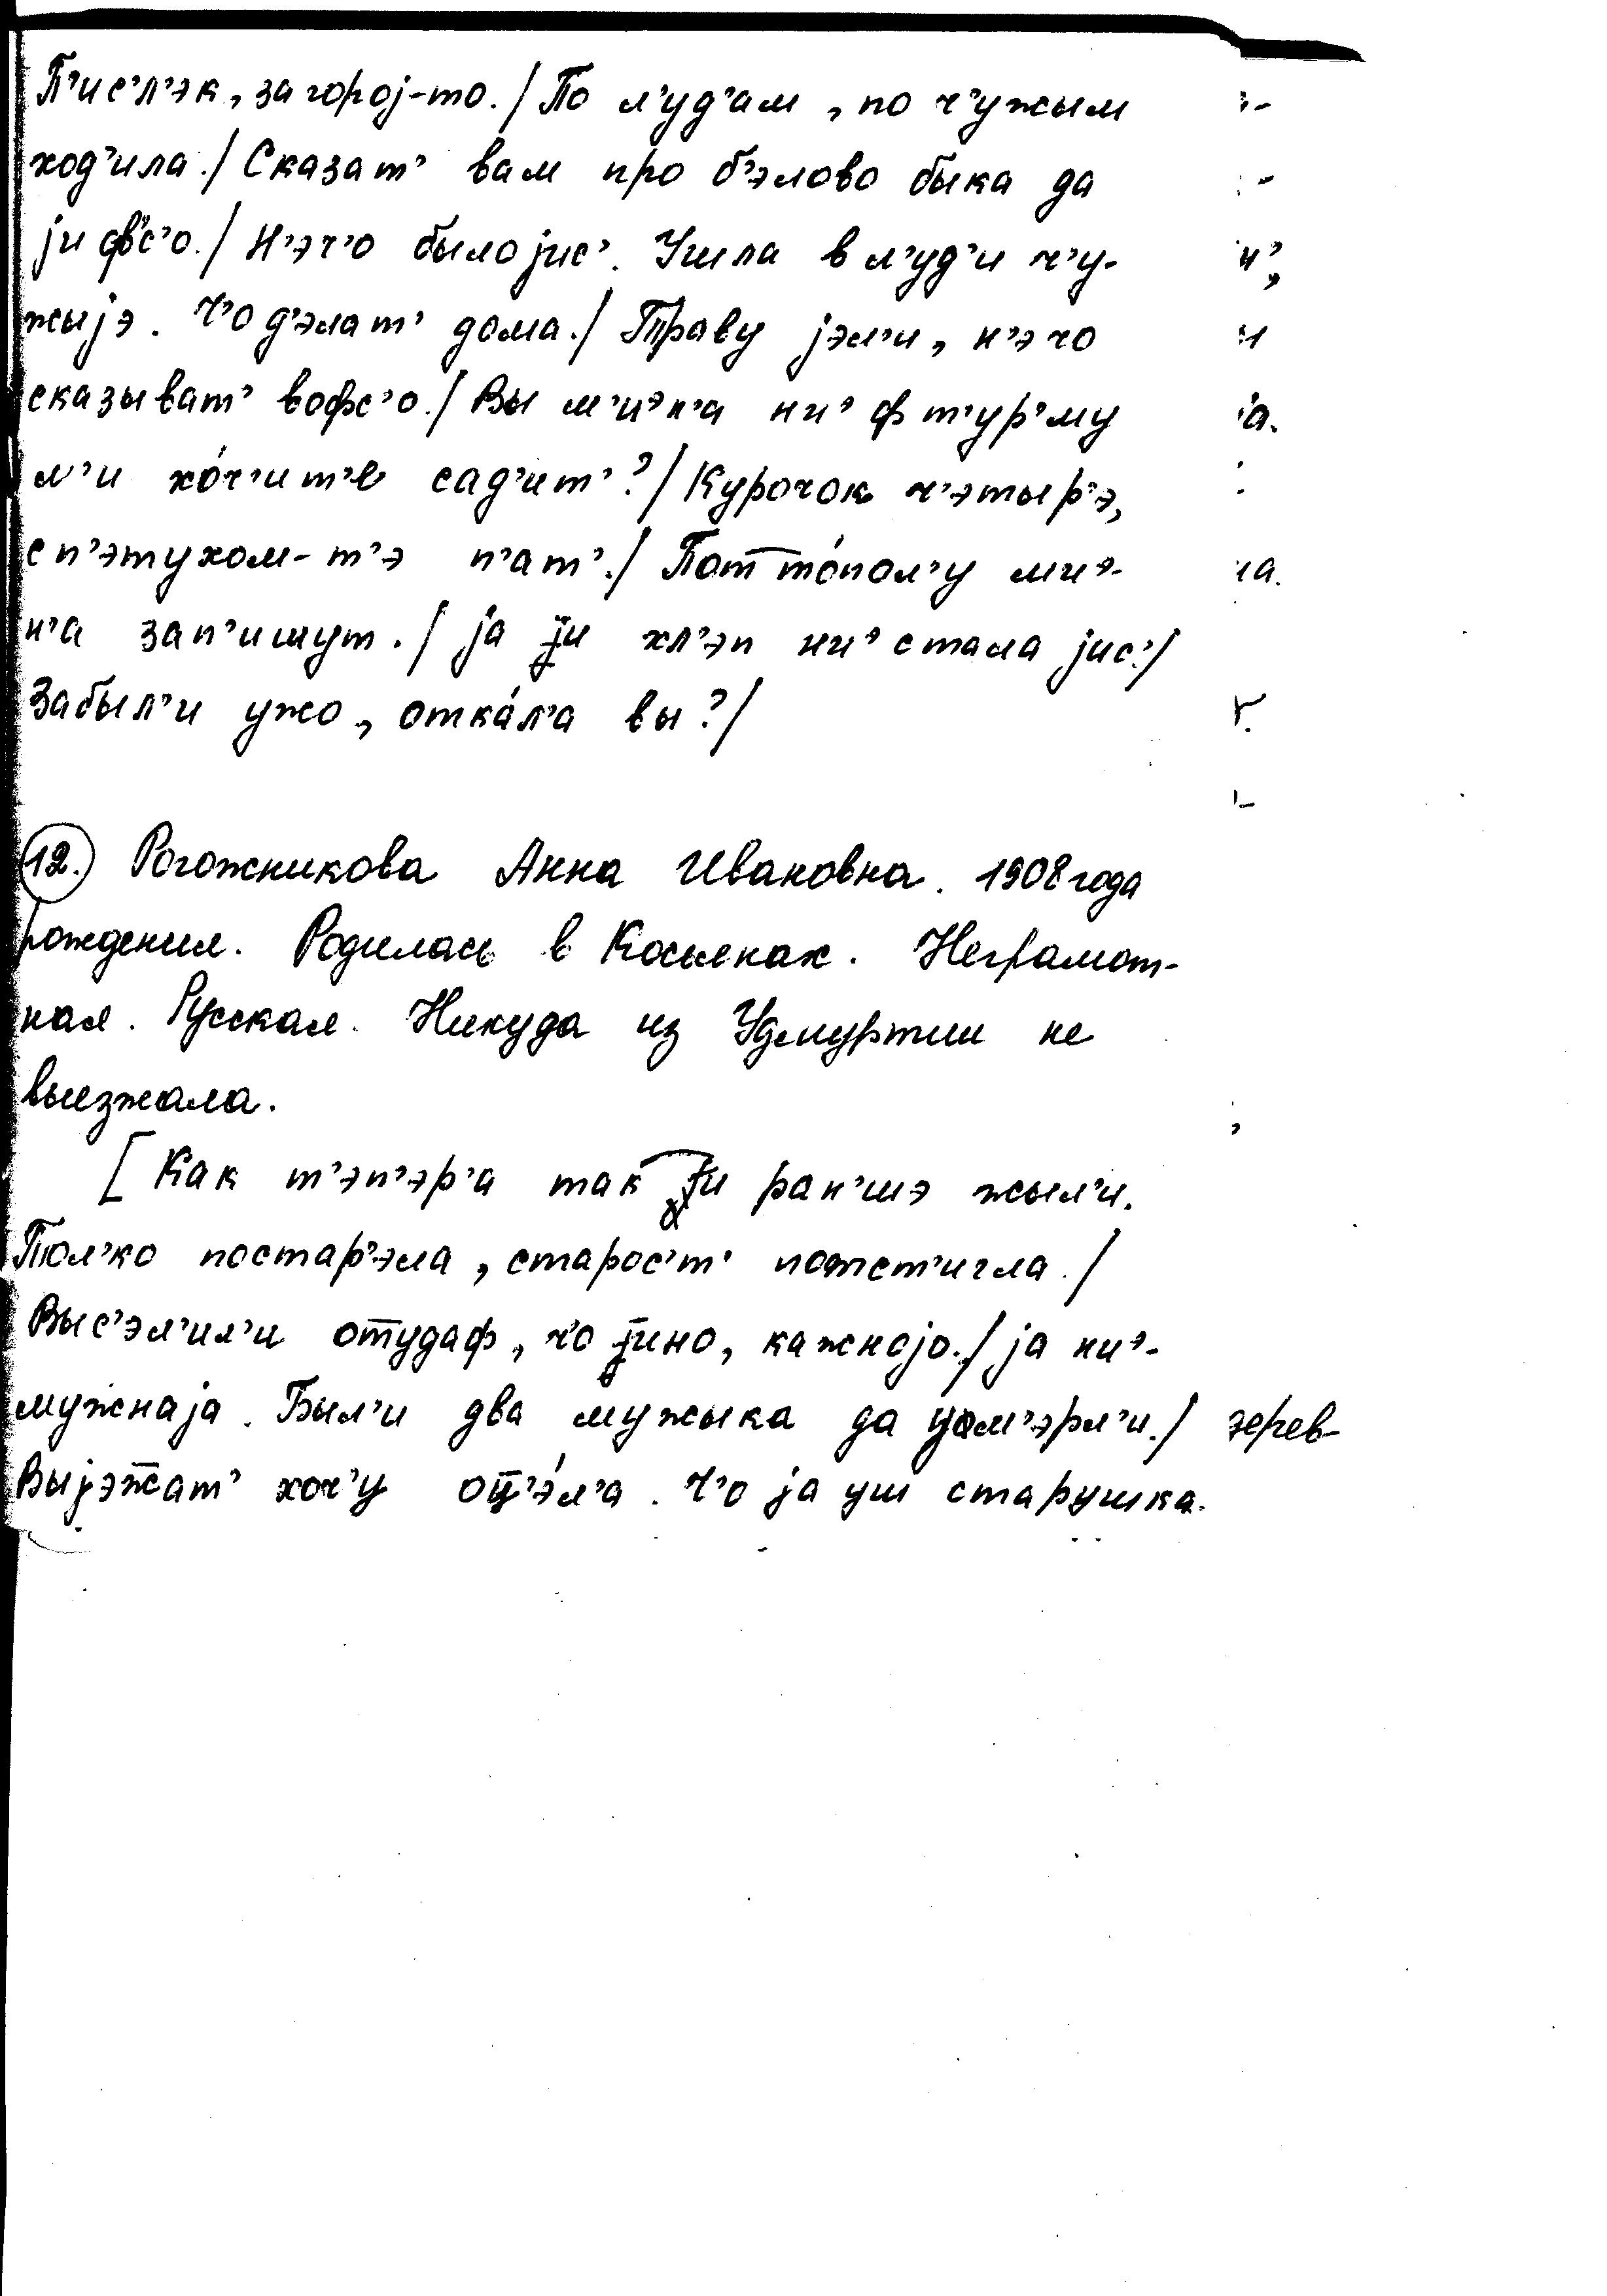 П'ис'л'эк, за горој-то. / По л'уд'ам, по ч'ужым
ход'ила. / Сказат' вам про б'элово быка да
ји фс'о. / Н'эч'о было јис'. Ушла в л'уд'и ч'у-
жыјэ. Ч'о д'элат' дома. / Траву јэл'и, н'эчо
сказыват' вофс'о. / Вы м'иэн'а ниэ ф т'ур'му
л'и хо́ч'ит'е сад'ит'? / Курочок ч'этыр'э,
с п'этухом-т'э п'ат'. / Пот то́пол'у миэ-
н'а зап'ишут. / ја ји хл'эп ниэ стала јис'. /
Забыл'и ужо, отка́л'а вы? /
12.) Рогожникова Анна Ивановна. 1908 года
рождения. Родилась в Косьенах. Неграмот-
ная. Русская. Никуда из Удмуртии не
выезжала.
[Как т'эп'эр'а так ји ран'шэ жыл'и.
Тол'ко постар'эла, старос'т' потст'игла. /
Выс'эл'ил'и отудаф, ч'о јино, кажнојо. / ја ниэ-
мужнаја. Был'и два мужыка да ум'эрл'и. /
Выјэж̄ат' хоч'у оц̄'э́л'а. Ч'о ја уш старушка.